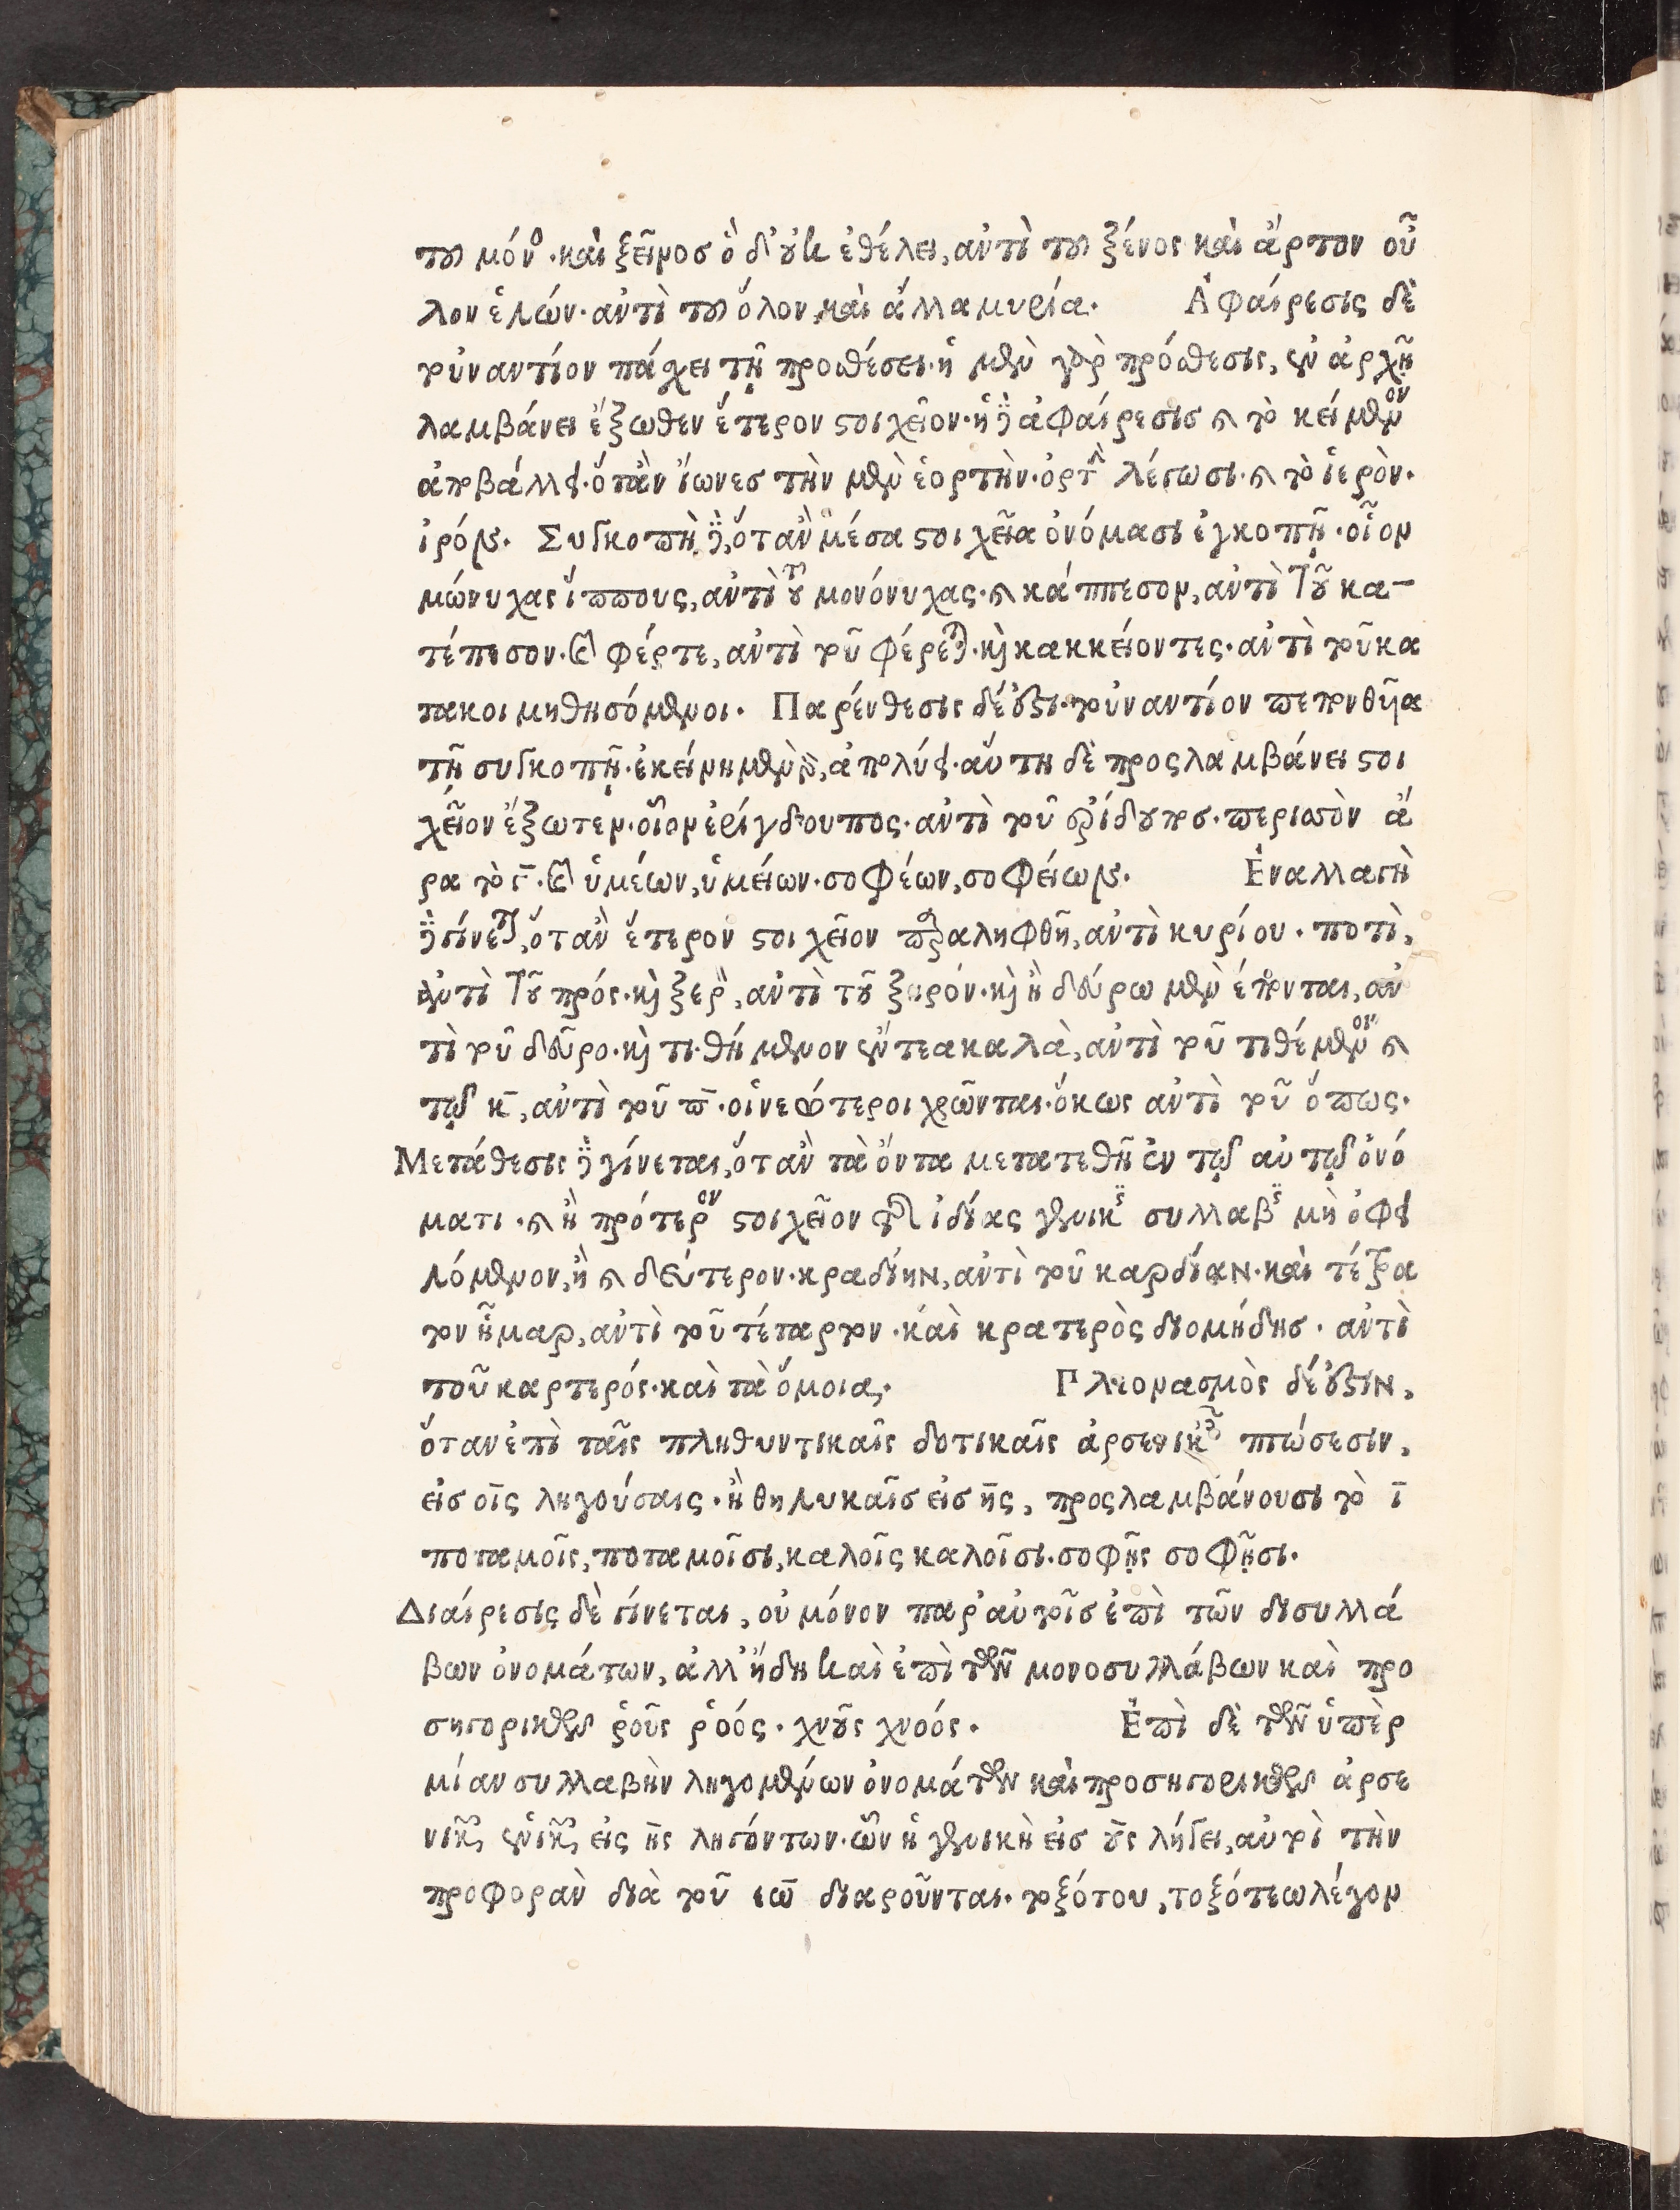 του μόνος· καὶ ξεῖνος ὅδ' οὐκ ἐθέλει, αὐτὶ του ξένος καὶ ἄρτον οὖ
λον ἑλών· αὐτὶ του ὅλον, καὶ ἄλλα μυρία. Ἀφαίρεσις δὲ
τοὐναντίον πάσχει τῇ προσθέσει· ἡ μὲν γὰρ πρόσθεσις, ἐν ἀρχῇ
λαμβάνει ἔξωθεν ἕτερον στοιχεῖον· ἡ δὲ ἀφαίρεσις καὶ τὸ κείμενον
ἀποβάλλει· ὅταν ἴωνες τὴν μὲν ἑορτὴν· ὁρτὴν λέγωσι· καὶ τὸ ἱερὸν·
ἱρόν. Συγκοπὴ δὲ, ὅταν μέσα στοιχεῖα ὀνόμασι ἐγκοπῇ· οἷον
μώνυχας ἵππους, αὐτὶ τοῦ μονόνυχας· καὶ κάππεσον, αὐτὶ τοῦ κα-
τέπεσον· καὶ φέρτε, αὐτὶ τοῦ φέρετε· καὶ κακκείοντες· αὐτὶ τοῦ κα
τακοιμηθησόμενοι. Παρένθεσις δέ ἐστι· τοὐναντίον πεπονθῆα
τῇ συγκοπῇ· ἐκείνη μὲν γὰρ, ἀπολύει· αὕτη δὲ προσλαμβάνει στοι
χεῖον ἔξωτεν· οἷον ἐρίγδουπος· αὐτὶ τοῦ ἐρίδουπος· περισσὸν ἄ
ρα τὸ γ̄· καὶ ὑμέων, ὑμείων· σοφέων, σοφείων. Ἐναλλαγὴ
δὲ γίνεται, ὅταν ἕτερον στοιχεῖον παραληφθῇ, αὐτὶ κυρίου· ποτὶ,
αὐτὶ τοῦ πρός· καὶ ξερὸν, αὐτὶ τοῦ ξηρόν· καὶ ἢ δεύρω μὲν ἕπονται, αὐ
τὶ τοῦ δεῦρο· καὶ τιθήμενον ἔντεα καλὰ, αὐτὶ τοῦ τιθέμενον καὶ
τῷ κ̄, αὐτὶ τοῦ π̄· οἱ νεώτεροι χρῶνται· ὅκως αὐτὶ τοῦ ὅπως.
Μετάθεσις δὲ γίνεται, ὅταν τὰ ὄντα μετατεθῇ ἐν τῷ αὐτῷ ὀνό
ματι· καὶ ἢ πρότερον στοιχεῖον τῆς ἰδίας γενικῆς συλλαβῆς μὴ ὀφει
λόμενον, ἢ καὶ δεύτερον· κραδίην, αὐτὶ τοῦ καρδίαν· καὶ τέτρα
τον ἦμαρ, αὐτὶ τοῦ τέταρτον· καὶ κρατερὸς διομήδης· αὐτὶ
τοῦ καρτερός· καὶ τὰ ὅμοια. Πλεονασμὸς δέ ἐστιν,
ὅταν ἐπὶ ταῖς πληθυντικαῖς δοτικαῖς ἀρσενικῶν πτώσεσιν,
εἰς οῖς ληγούσαις· ἢ θηλυκαῖς εἰς ῆς, προσλαμβάνουσι τὸ ῑ
ποταμοῖς, ποταμοῖσι, καλοῖς καλοῖσι· σοφῇς σοφῇσι.
Διαίρεσις δὲ γίνεται, οὐ μόνον παρ' αὐτοῖς ἐπὶ τῶν δισυλλά
βων ὀνομάτων, ἀλλ' ἤδη καὶ ἐπὶ τῶν μονοσυλλάβων καὶ προ
σηγορικῶν ῥοῦς ῥοός· χνοῦς χνοός. Ἐπὶ δὲ τῶν ὑπὲρ
μίαν συλλαβὴν ληγομένων ὀνομάτων καὶ προσηγορικῶν ἀρσε
νικῶν, ἑνικῶν, εἰς ῆς ληγόντων· ὧν ἡ γενικὴ εἰς οῦς λήγει, αὐτοὶ τὴν
προφορὰν διὰ τοῦ εω διαροῦνται· τοξότου, τοξότεω λέγον